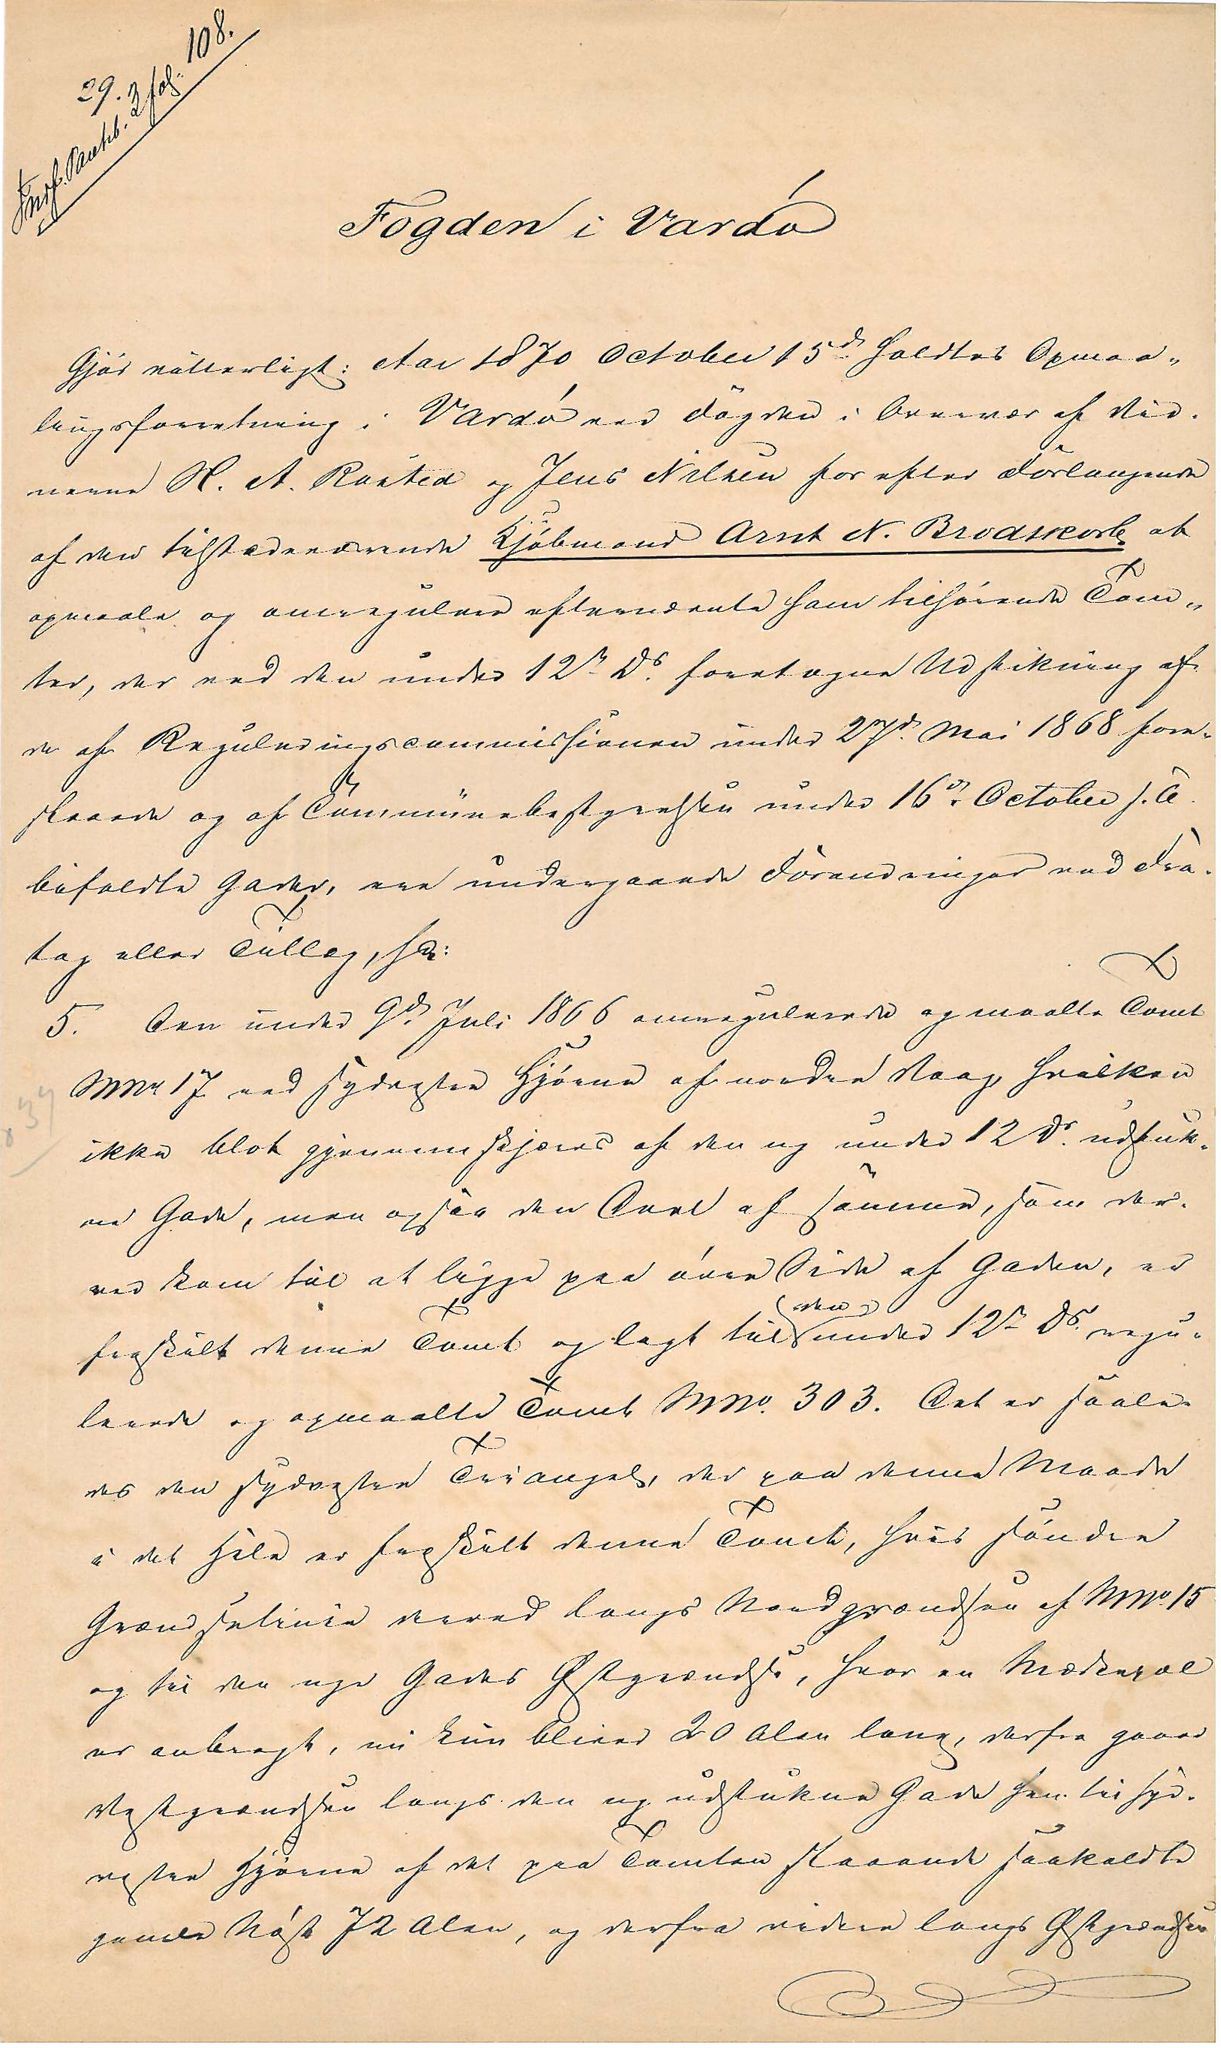 29.
Indf. Pantb. 3 fol: 108.
Fogden i Vardø
Gjør vitterligt: Aar 1870 October 15d holdtes Opmaa„
lingsforretning i Vardø ved Fogden i Overvær af Vid-
nerne H. A. Rasted og Jens Nilsen for efter Forlangende
af den tilstedeværende Kjøbmand Arnt N. Brodtkorb at
opmaale og omregulere efternævnte ham tilhørende Tom„
ter, der ved den under 12te Ds. foretagne Udstikning af
de af Reguleringscommissionen under 27d. Mai 1868 fore-
slaaede og af Communebestyrelsen under 16d. October s. A.
bifaldte Gader, ere undergaaede Forandringer ved Fra-
tag eller Tillæg, se:
5. Den under 9d. Juli 1866 omregulerede og maalte Tomt
MNo. 17 ved sydvestre Hjørne af nordre Vaag, hvilken
ikke blot gjennemskjæres af den ny under 12 Ds. udstuk-
ne Gade, men ogsaa den Deel af samme, som der-
ved kom til at ligge paa øvre Side af Gaden, er
fraskilt denne Tomt og lagt til (den) under 12te Ds. regu-
lerede og opmaalte Tomt MNo. 303. Det er saale-
des den sydvestre Triangel, der paa denne Maade
i det Hele er fraskilt denne Tomt, hvis søndre
Grændselinie derved langs Nordgrændsen af MNo. 15
og til den nye Gades Østgrændse, hvor en Mærkepæl
er anbragt, nu kun bliver 20 Alen lang, derfra gaaer
Vestgrændsen langs den ny udstukne Gade hen til syd-
vestre Hjørne af det paa Tomten staaende saakaldte
gamle Nøst 72 Alen, og derfra videre langs Østgrændsen